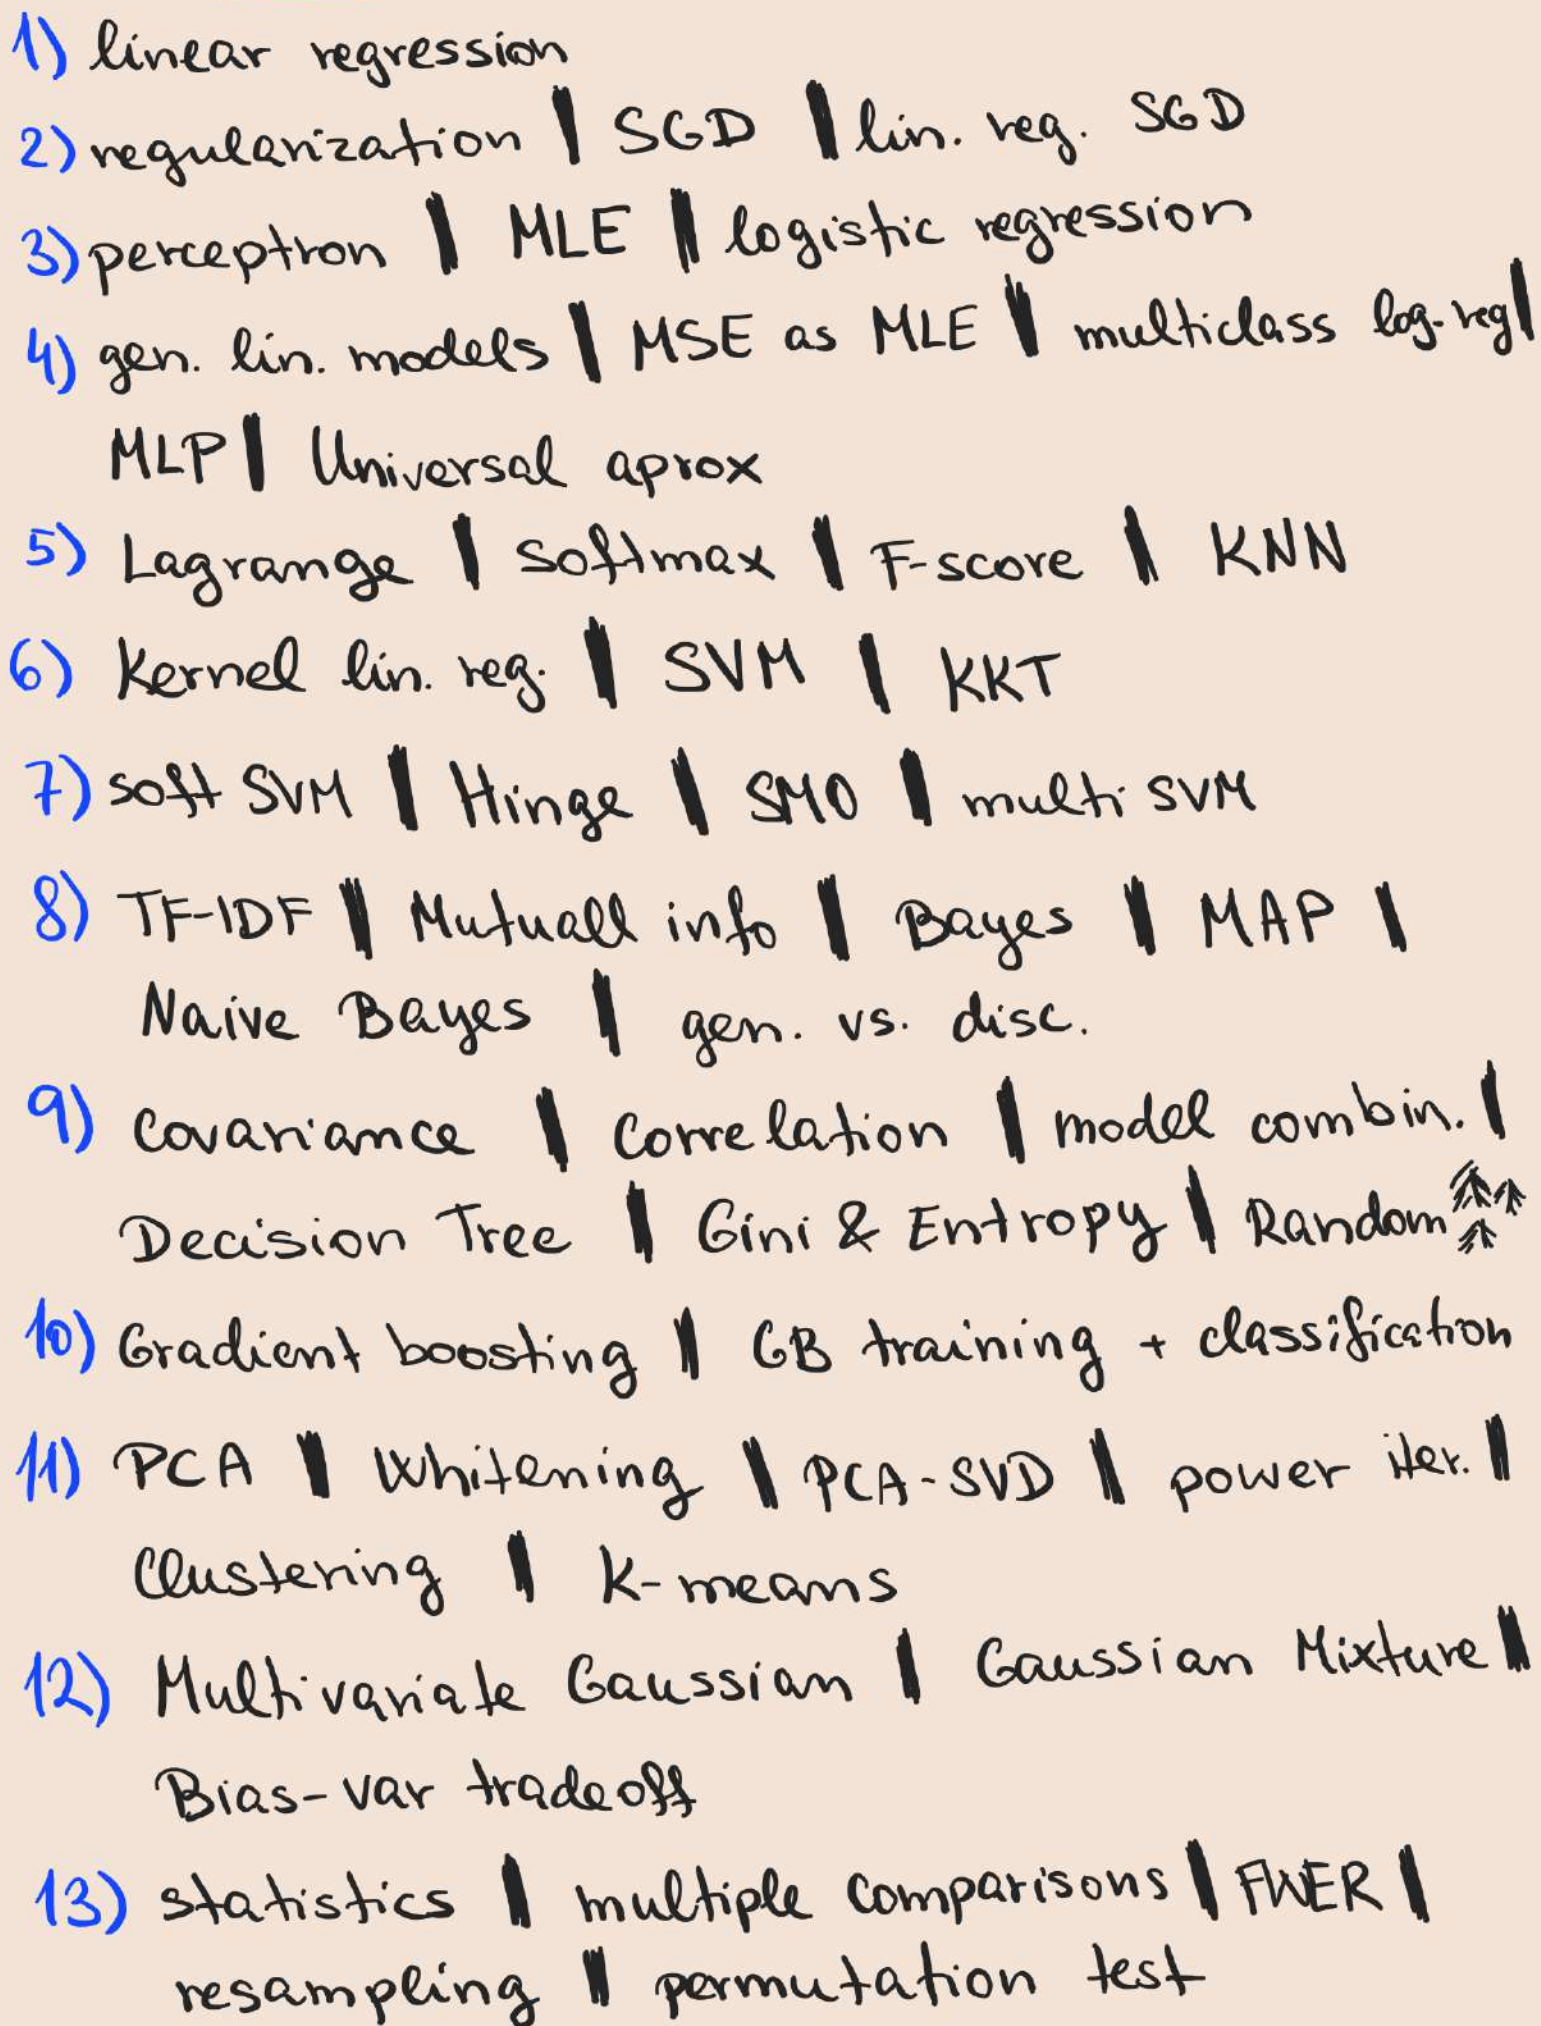 1) linear regression
2) regularization | SGD | lin. reg. SGD
3) perceptron | MLE | logistic regression
4) gen. lin. models | MSE as MLE | multiclass log-reg |
MLP | Universal aprox
5) Lagrange | softmax | F-score | KNN
6) Kernel lin. reg. | SVM | KKT
7) soft SVM | Hinge | SMO | multi SVM
8) TF-IDF | Mutuall info | Bayes | MAP |
Naive Bayes | gen. vs. disc.
9) covariance | correlation | model combin. |
Decision Tree | Gini & Entropy | Random
10) Gradient boosting | GB training + classification
11) PCA | Whitening | PCA-SVD | power iter. |
Clustering | K-means
12) Multivariate Gaussian | Gaussian Mixture |
Bias-var tradeoff
13) statistics | multiple comparisons | FWER |
resampling | permutation test